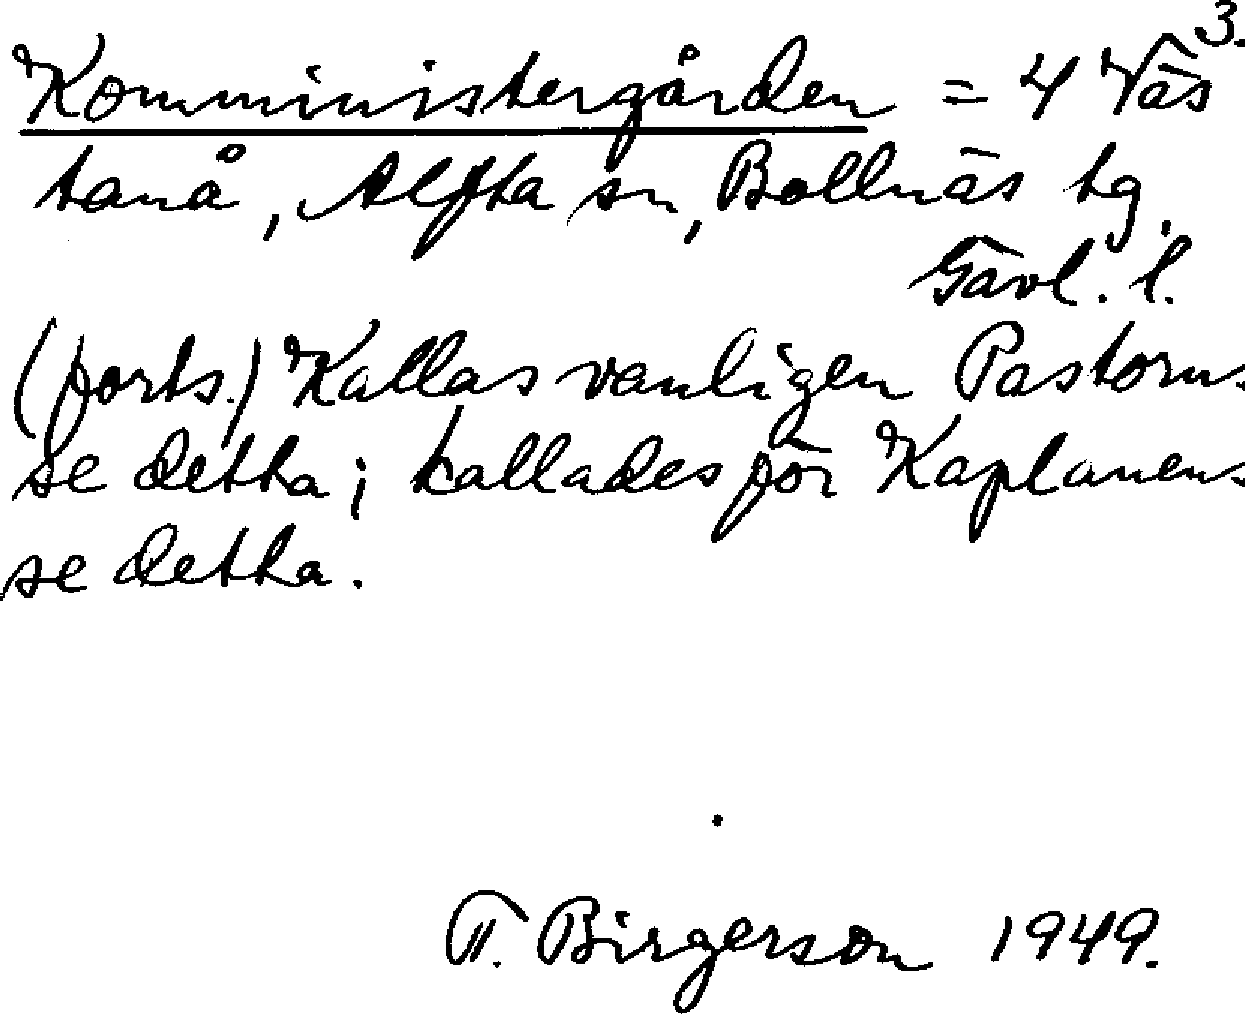 3.
Kommministergården = 4 Väs
tanå, Alfta sn, Bollnäs tg.
Gävl. l.
(forts.) Kallas vanligen Pastorns
se detta; kallades förr Kaplanens
se detta.
T. Birgerson 1949.